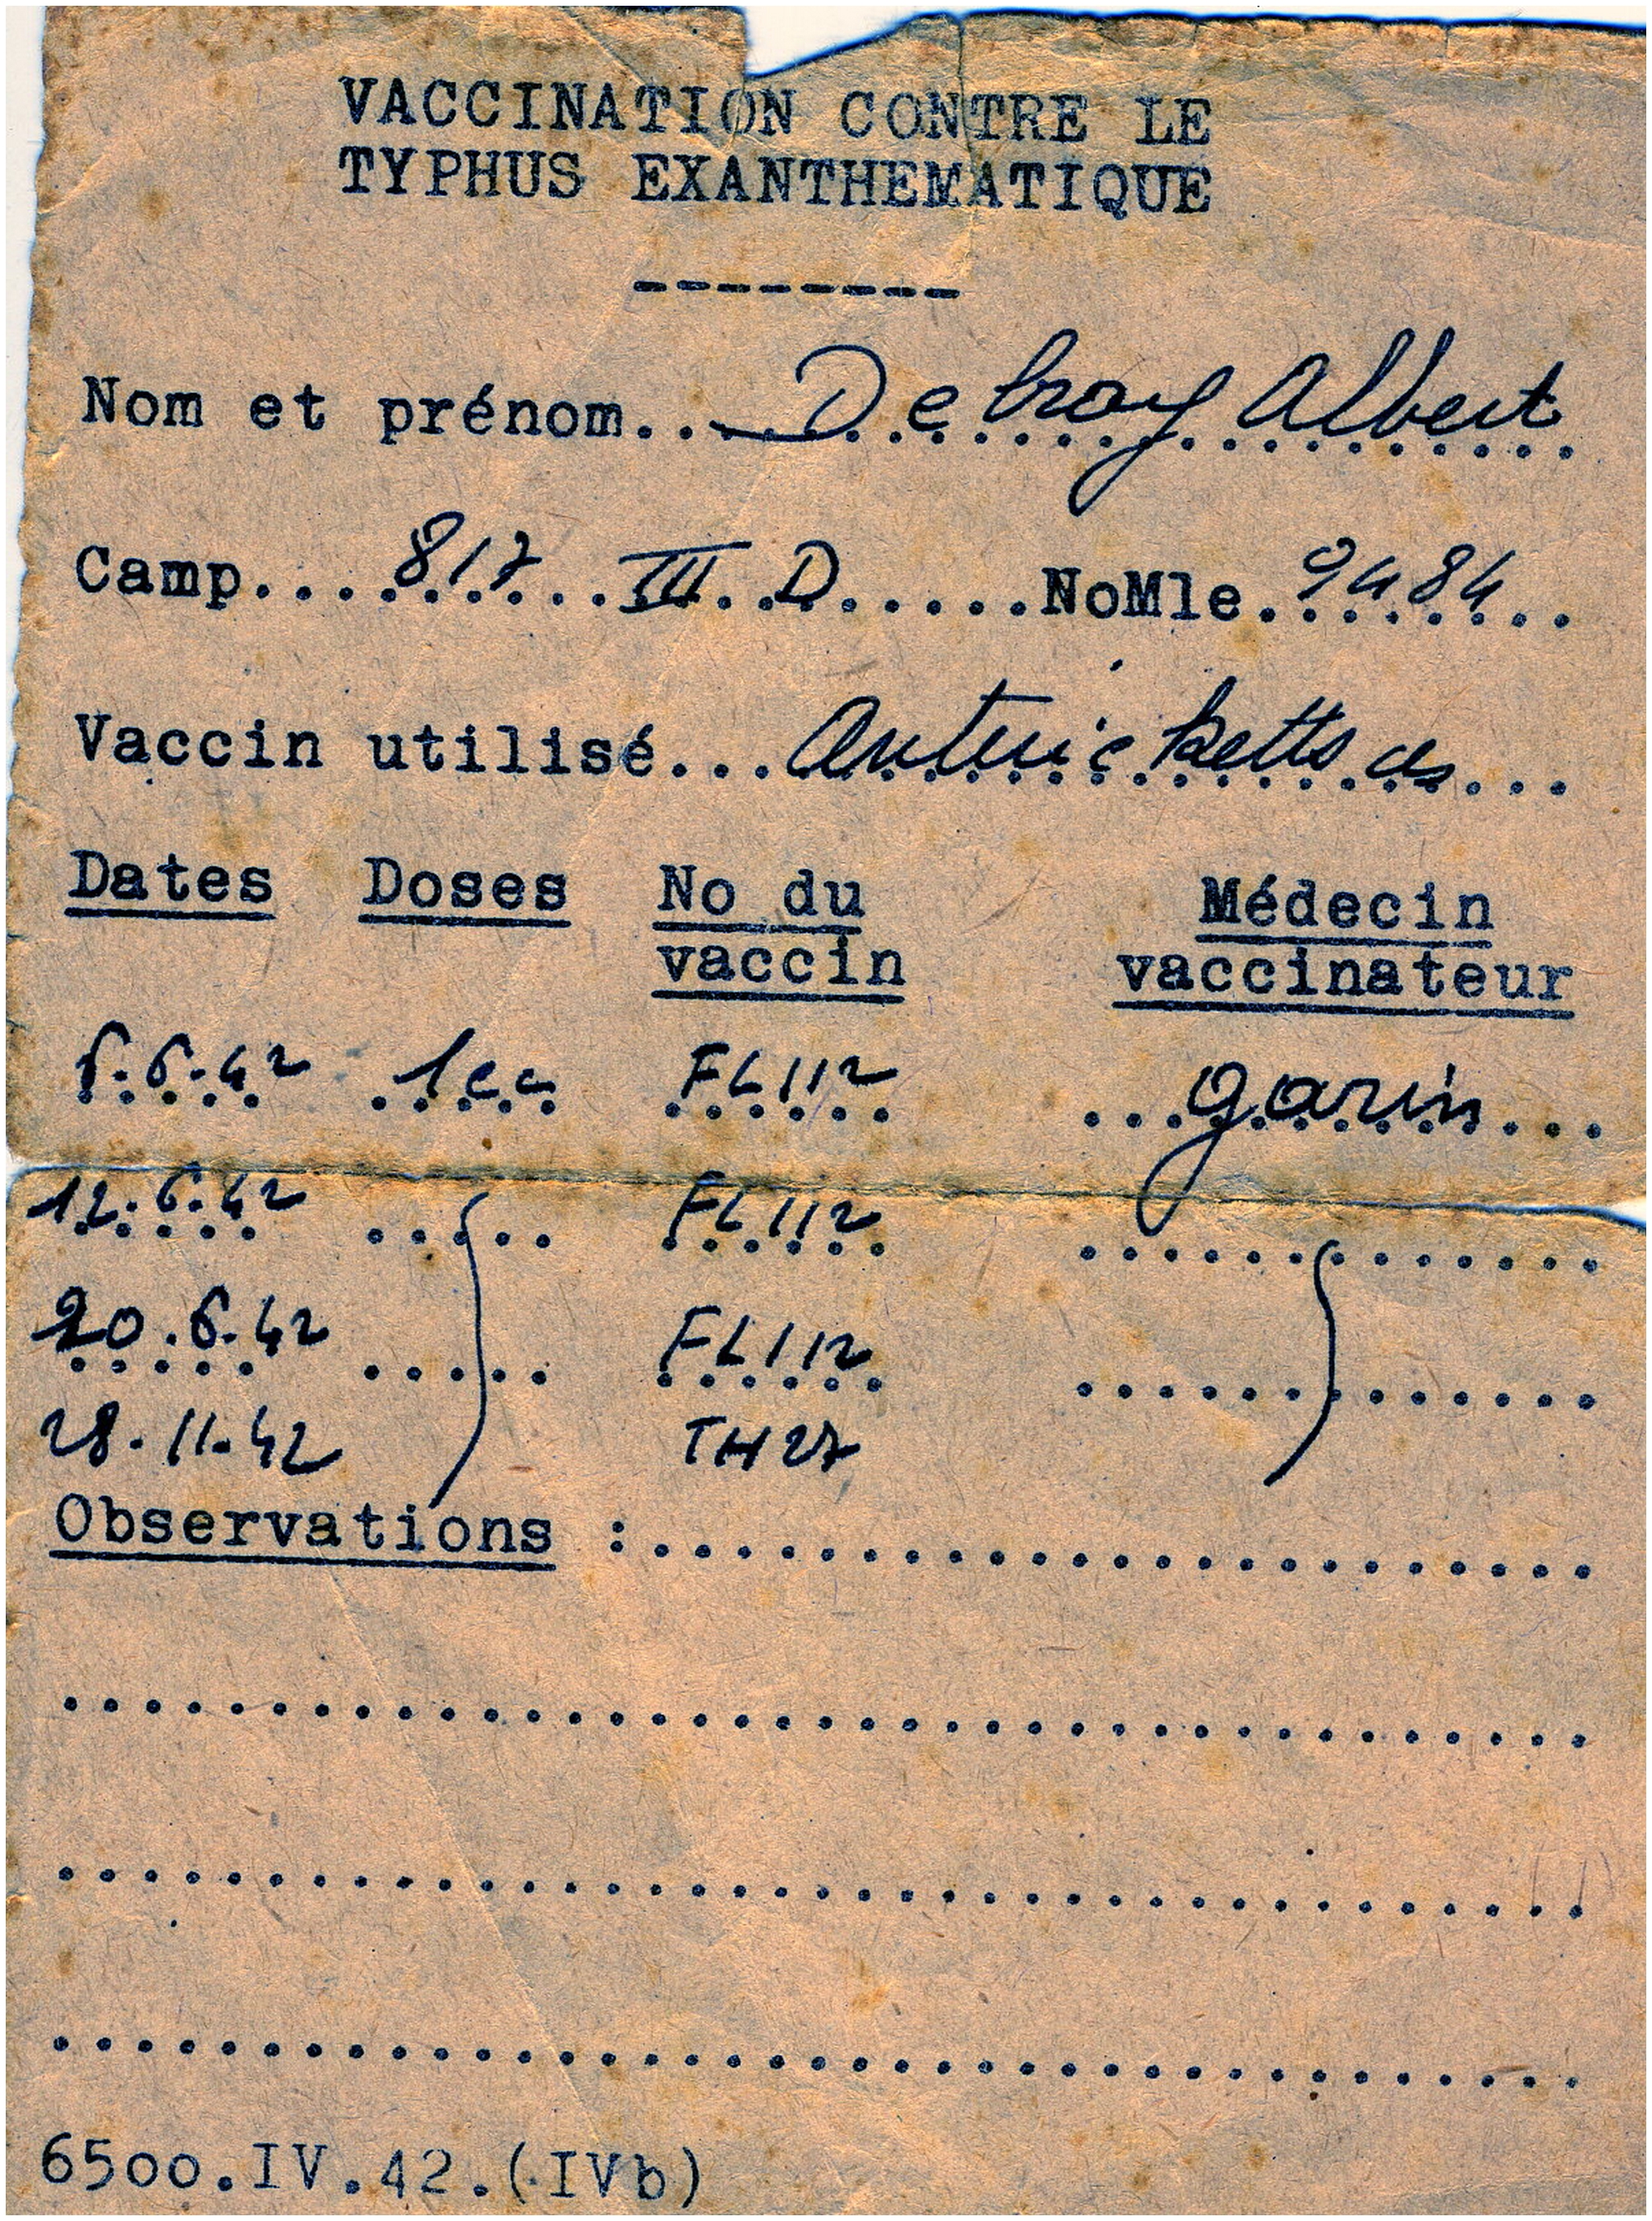 VACCINATION CONTRE LE
TYPHUS EXANTHEMATIQUE
---------
Nom et prénom... Debray Albert
Camp... 817 III D ......NoMle. 9484
Vaccin utilisé...
Dates Doses No du vaccin Médecin vaccinateur
6.6.42 1cc FL112 garin
12.6.42 FL112
20.6.42 FL112
28.11.42 TH27
Observations :.......................
6500.IV.42.(IVb)